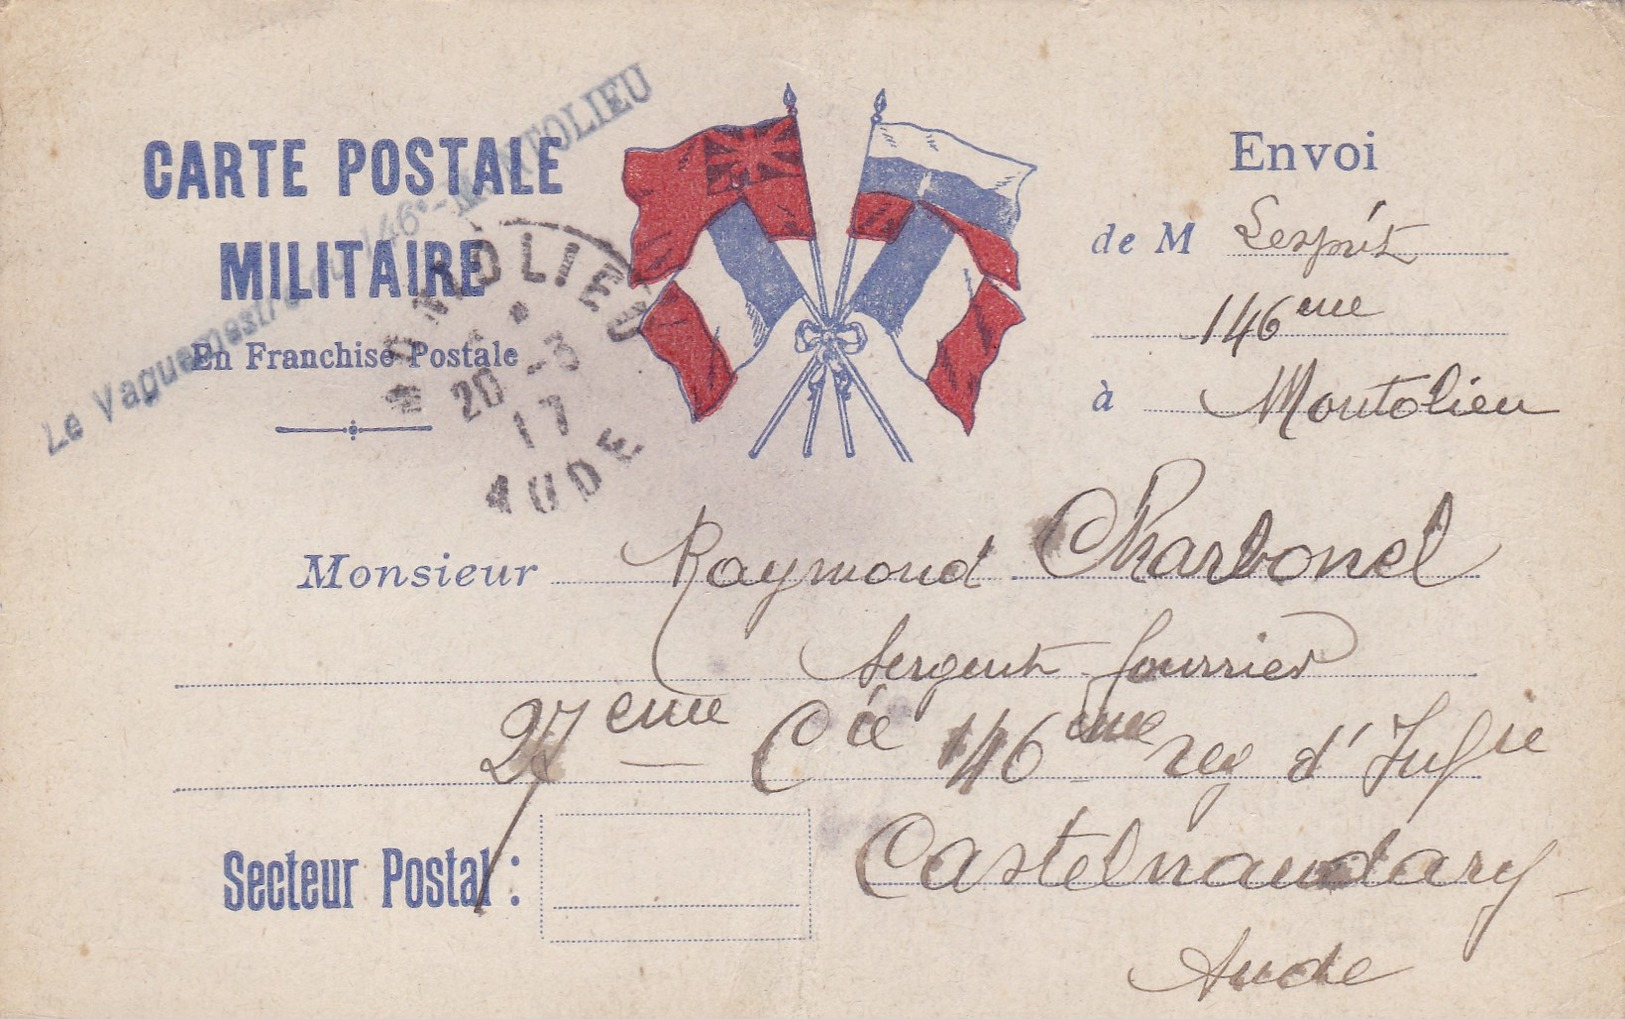 CARTE POSTALE
MILITAIRE
En Franchise Postale
Le Vaguemestre du 146e - MONTOLIEU
MONTOLIEU
20 -3
17
AUDE
Envoi
de M Lesprit
146eme
à Montolieu
Monsieur Raymond Charbonel
Sergent fourrier
27eme Cie 146eme reg d'Infie
Secteur Postal :
Castelnaudary -
Aude